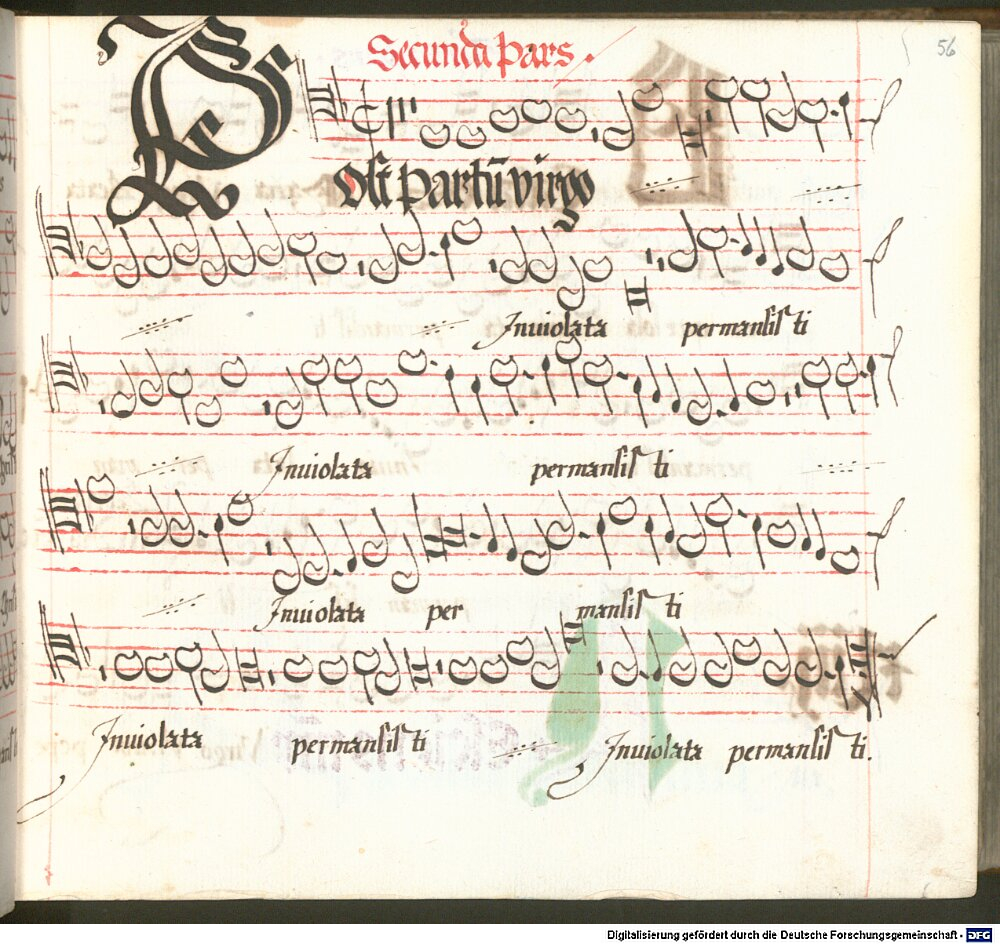 56
Secunda Pars.
Post partū virgo
Inviolata permansisti
Inviolata permansisti
Inviolata permansisti
Inviolata permansisti Inviolata permansisti.
Digitalisierung gefördert durch die Deutsche Forschungsgemeinschaft - DFG